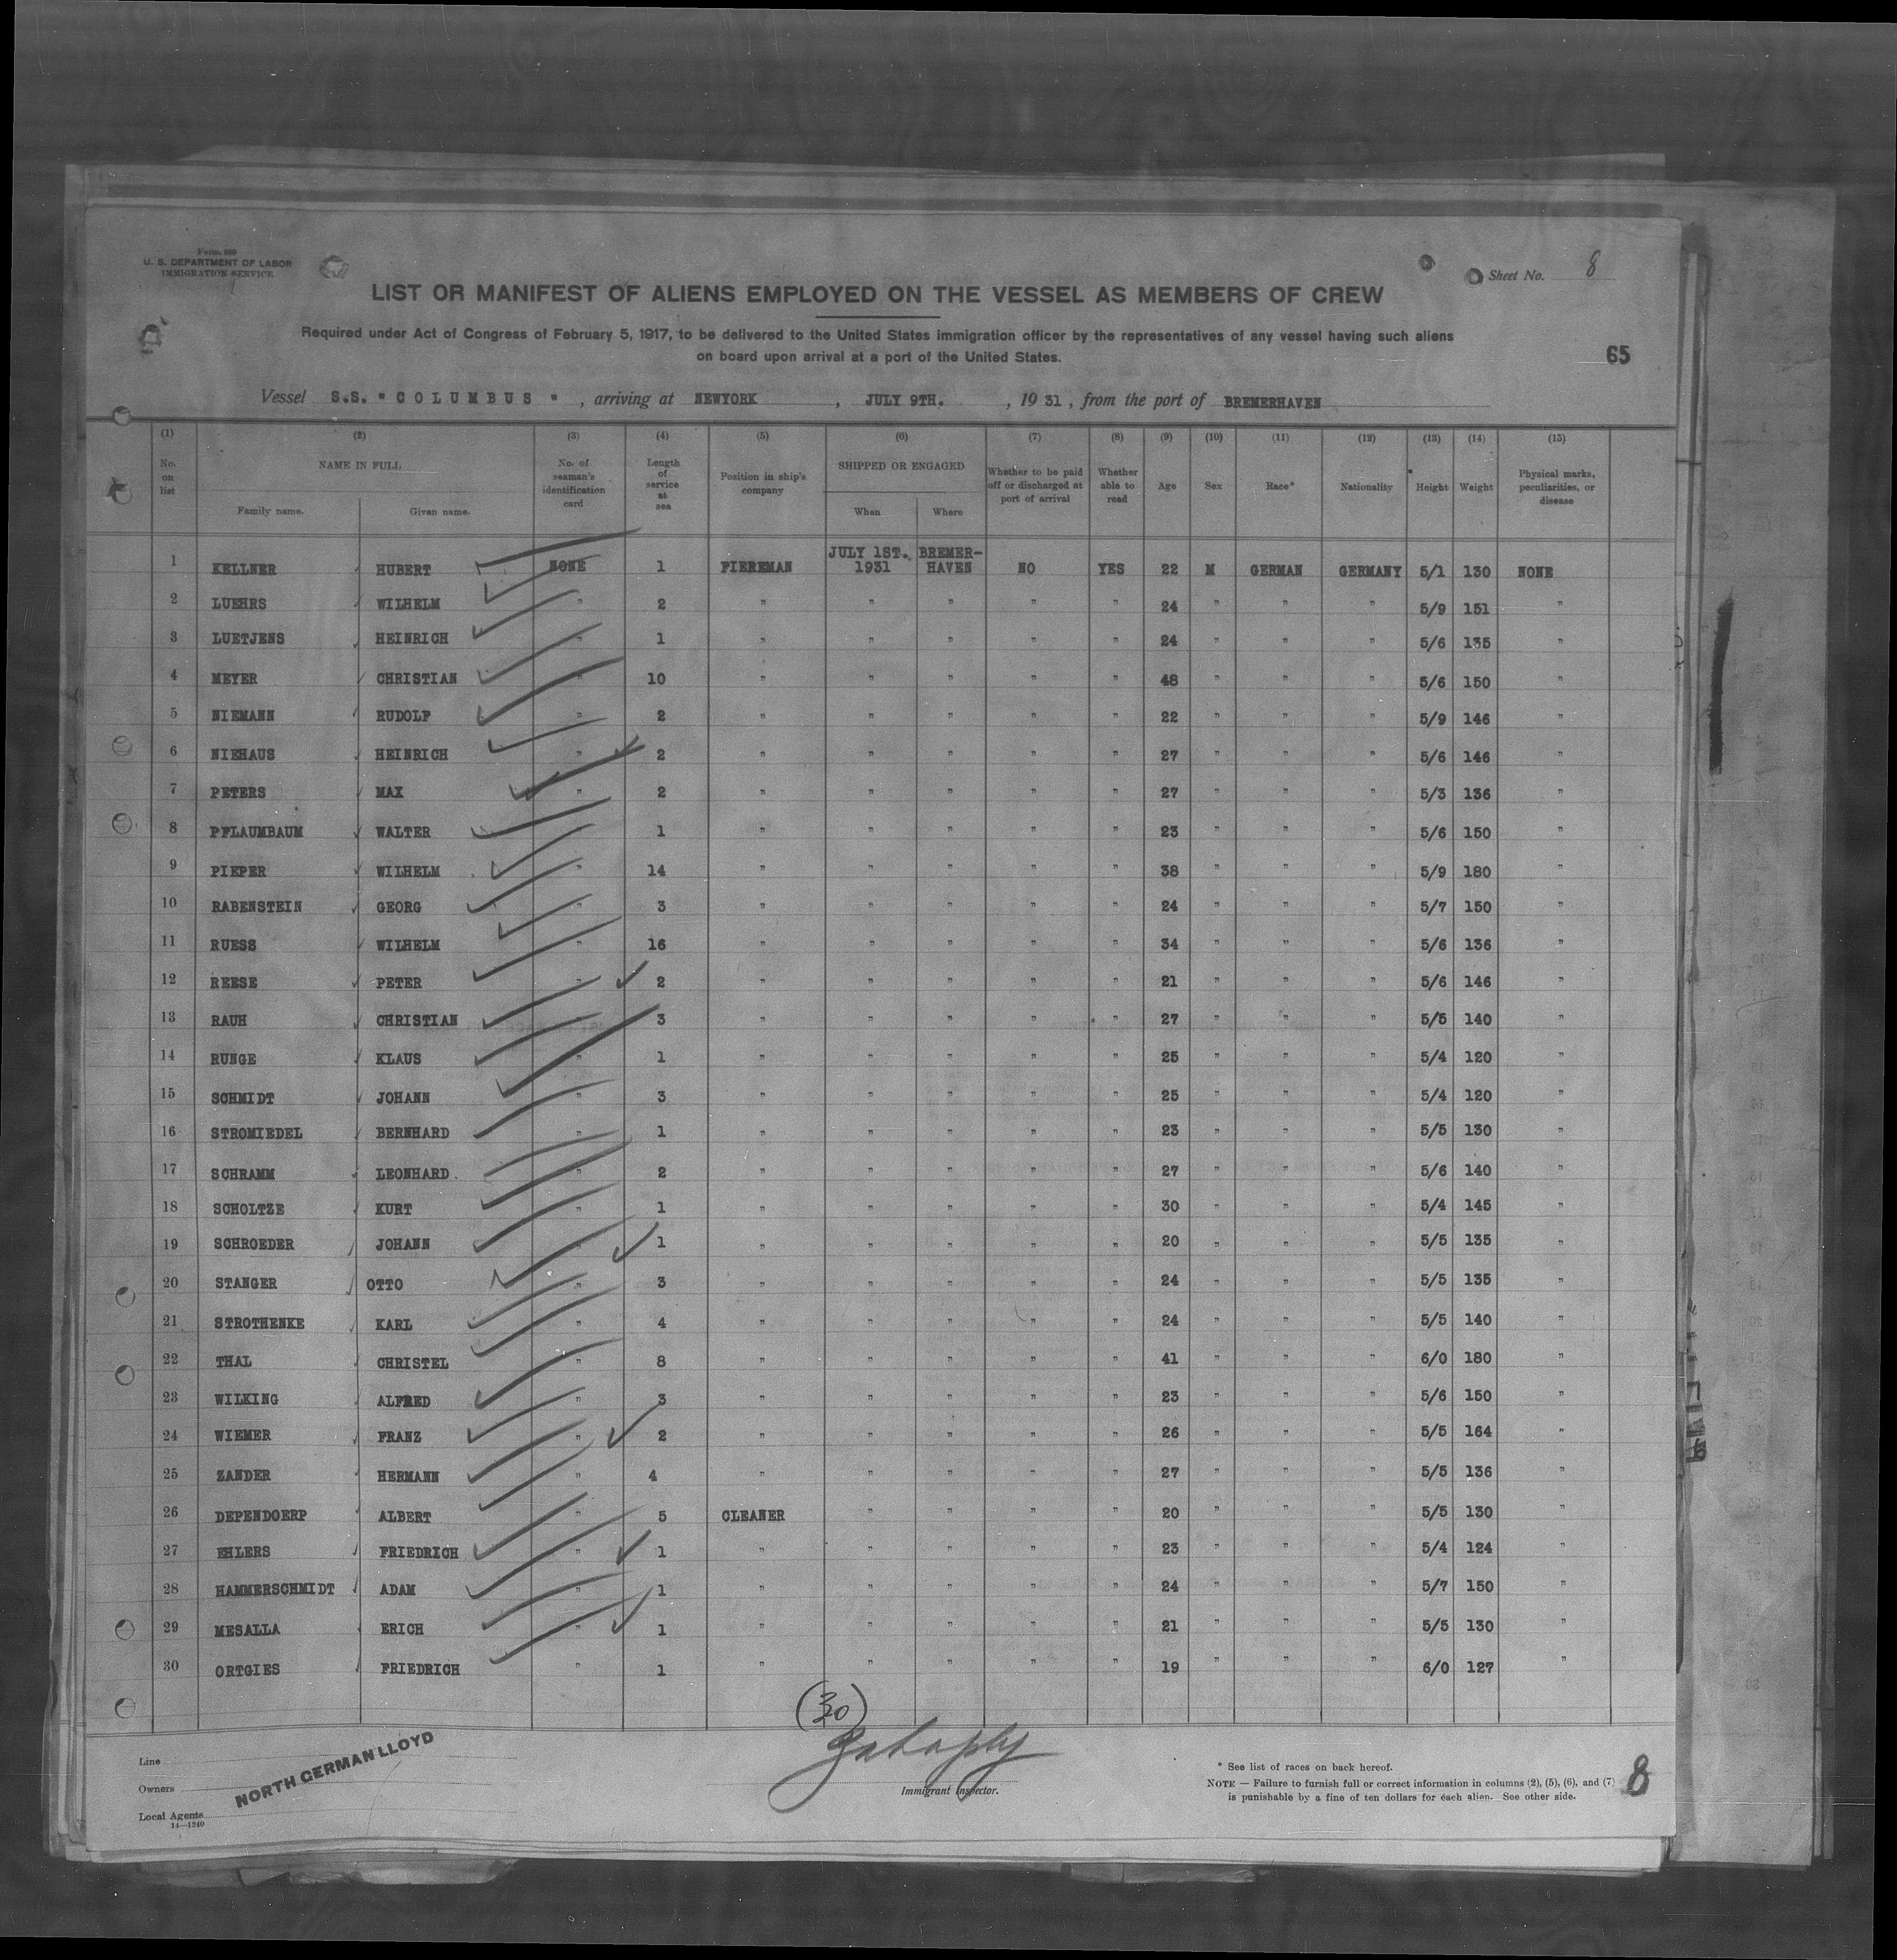 Form 680
U. S. DEPARTMENT OF LABOR
IMMIGRATION SERVICE
Sheet No. 8
LIST OR MANIFEST OF ALIENS EMPLOYED ON THE VESSEL AS MEMBERS OF CREW
Required under Act of Congress of February 5, 1917, to be delivered to the United States immigration officer by the representatives of any vessel having such aliens
on board upon arrival at a port of the United States.
65
Vessel S.S. "COLUMBUS", arriving at NEWYORK, JULY 9TH., 1931, from the port of BREMERHAVEN
(1) (2) (3) (4) (5) (6) (7) (8) (9) (10) (11) (12) (13) (14) (15)
No. on list NAME IN FULL Family name. Given name. No. of seaman's identification card Length of service at sea Position in ship's company SHIPPED OR ENGAGED When Where Whether to be paid off or discharged at port of arrival Whether able to read Age Sex Race* Nationality Height Weight Physical marks, peculiarities, or disease
1 KELLNER HUBERT NONE 1 FIEREMAN JULY 1ST. 1931 BREMER-HAVEN NO YES 22 M GERMAN GERMANY 5/1 130 NONE
2 LUEHRS WILHELM " 2 " " " " " 24 " " " 5/9 151 "
3 LUETJENS HEINRICH " 1 " " " " " 24 " " " 5/6 135 "
4 MEYER CHRISTIAN " 10 " " " " " 48 " " " 5/6 150 "
5 NIEMANN RUDOLF " 2 " " " " " 22 " " " 5/9 146 "
6 NIEHAUS HEINRICH " 2 " " " " " 27 " " " 5/6 146 "
7 PETERS MAX " 2 " " " " " 27 " " " 5/3 136 "
8 PFLAUMBAUM WALTER " 1 " " " " " 23 " " " 5/6 150 "
9 PIEPER WILHELM " 14 " " " " " 38 " " " 5/9 180 "
10 RABENSTEIN GEORG " 3 " " " " " 24 " " " 5/7 150 "
11 RUESS WILHELM " 16 " " " " " 34 " " " 5/6 136 "
12 REESE PETER " 2 " " " " " 21 " " " 5/6 146 "
13 RAUH CHRISTIAN " 3 " " " " " 27 " " " 5/5 140 "
14 RUNGE KLAUS " 1 " " " " " 25 " " " 5/4 120 "
15 SCHMIDT JOHANN " 3 " " " " " 25 " " " 5/4 120 "
16 STROMIEDEL BERNHARD " 1 " " " " " 23 " " " 5/5 130 "
17 SCHRAMM LEONHARD " 2 " " " " " 27 " " " 5/6 140 "
18 SCHOLTZE KURT " 1 " " " " " 30 " " " 5/4 145 "
19 SCHROEDER JOHANN " 1 " " " " " 20 " " " 5/5 135 "
20 STANGER OTTO " 3 " " " " " 24 " " " 5/5 135 "
21 STROTHENKE KARL " 4 " " " " " 24 " " " 5/5 140 "
22 THAL CHRISTEL " 8 " " " " " 41 " " " 6/0 180 "
23 WILKING ALFRED " 3 " " " " " 23 " " " 5/6 150 "
24 WIEMER FRANZ " 2 " " " " " 26 " " " 5/5 164 "
25 ZANDER HERMANN " 4 " " " " " 27 " " " 5/5 136 "
26 DEPENDOERP ALBERT " 5 CLEANER " " " " 20 " " " 5/5 130 "
27 EHLERS FRIEDRICH " 1 " " " " " 23 " " " 5/4 124 "
28 HAMMERSCHMIDT ADAM " 1 " " " " " 24 " " " 5/7 150 "
29 MESALLA ERICH " 1 " " " " " 21 " " " 5/5 130 "
30 ORTGIES FRIEDRICH " 1 " " " " " 19 " " " 6/0 127 "
(30)
Immigrant Inspector.
Line
Owners
NORTH GERMAN LLOYD
Local Agents
14—1240
* See list of races on back hereof.
NOTE — Failure to furnish full or correct information in columns (2), (5), (6), and (7)
is punishable by a fine of ten dollars for each alien. See other side.
8